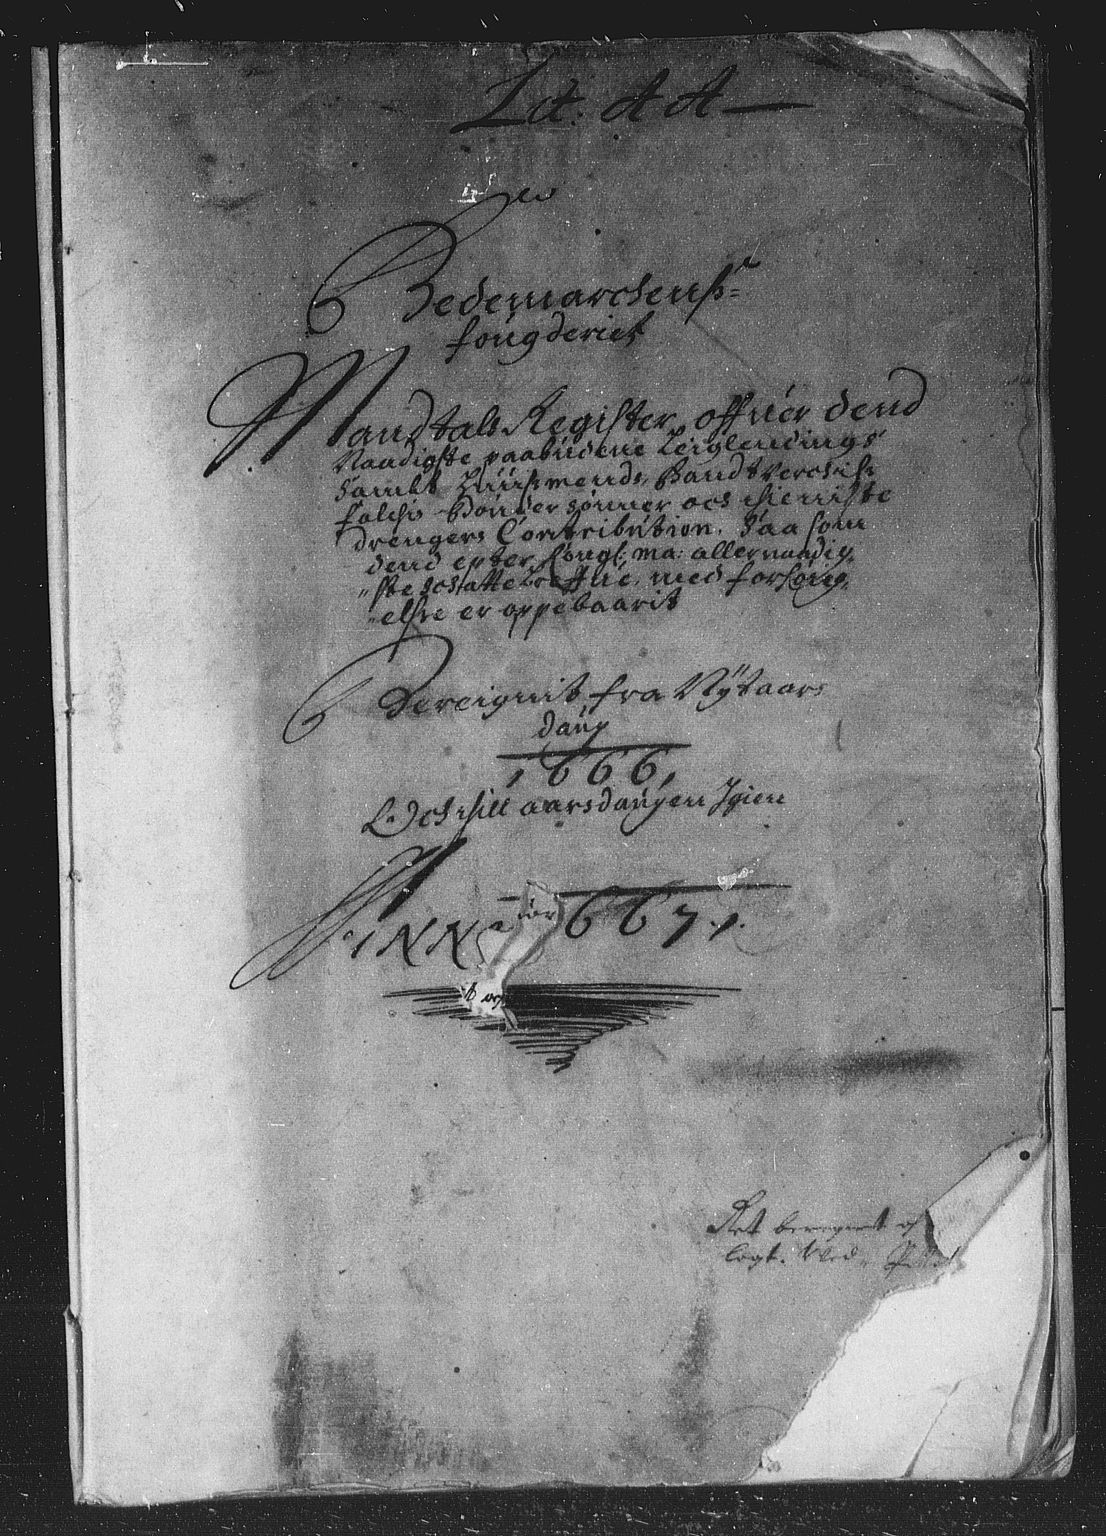 Lit: A A
Hedemarchens
fougderiet
Mandtals Register offuer dend
Naadigste paabudene Leiglendings
sambt Huusmends, Handtverchs
folchis Bønder sønner och thieniste
drengers Contribution. Saa som
dend epter Kongl: ma: allernaadig-
ste schatte breffue, med forhøig-
else er oppebaarit
Bereignit fra Nÿtaars
daug
1666,
Och till aarsdaugen Igien
ANNO 1667.
Ret beregnet